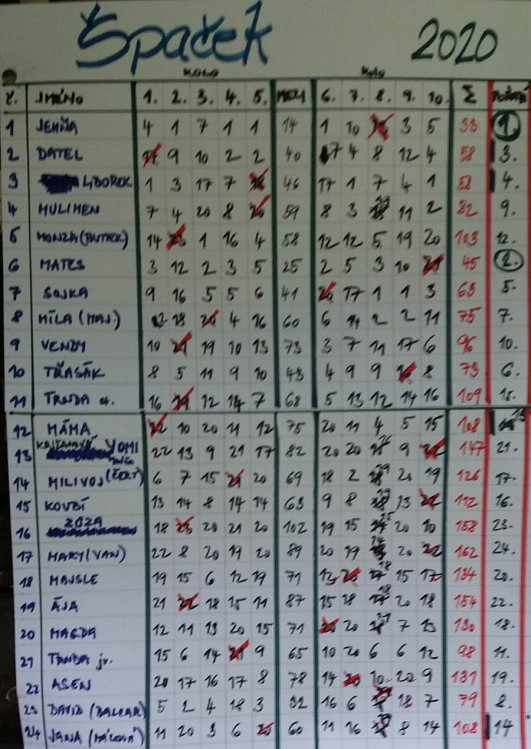 Špaček 2020
KOLO Kolo
Č. JMÉNO 1. 2. 3. 4. 5. MEZI 6. 7. 8. 9. 10. Σ POŘADÍ
1 JENÍJA 4 1 7 1 1 14 1 10 3 5 33 1.
2 DATEL 9 10 2 2 40 7 4 8 12 4 58 3.
3 LIBOREK 1 3 17 7 46 17 1 7 4 1 58 4.
4 HULIMEN 7 4 20 8 59 8 3 11 2 82 9.
5 MONZA (BUTREK) 14 1 16 4 58 12 12 5 19 20 103 12.
6 MATES 3 12 2 3 5 25 2 5 3 10 45 2.
7 SOJKA 9 16 5 5 6 41 17 1 1 3 63 5.
8 MÍLA (MAJ) 18 4 16 60 6 14 2 2 11 75 7.
9 VENDY 10 19 10 13 73 3 7 11 17 6 96 10.
10 TŘASÁK 8 5 11 9 10 43 4 9 9 8 73 6.
11 TRNDA st. 16 12 14 7 68 5 13 12 14 16 109 15.
12 MÁMA 10 20 11 12 75 20 11 4 5 15 108 13
13 VOMI 22 13 9 21 17 82 20 20 9 147 21.
14 MILIVOJ (ČERT) 6 7 15 20 69 18 2 20 19 126 17.
15 KOVBÍ 13 14 8 14 14 63 9 8 13 112 16.
16 ZOZA 18 20 21 20 102 19 15 20 10 158 23.
17 MARY (VAN) 22 8 20 19 20 89 20 19 20 162 24.
18 MAJSLE 19 15 6 12 19 71 12 15 17 134 20.
19 ÁJA 21 18 15 11 87 15 18 20 18 154 22.
20 MAGDA 12 11 13 20 15 71 20 7 13 130 18.
21 TRNDA jr. 15 6 14 9 65 10 20 6 6 12 98 11.
22 ASEN 20 17 16 17 8 78 14 10 20 9 131 19.
23 DAVID (BALCAR) 5 2 4 18 3 32 16 6 18 7 79 8.
24 JANA 11 20 3 6 60 11 16 8 14 108 14